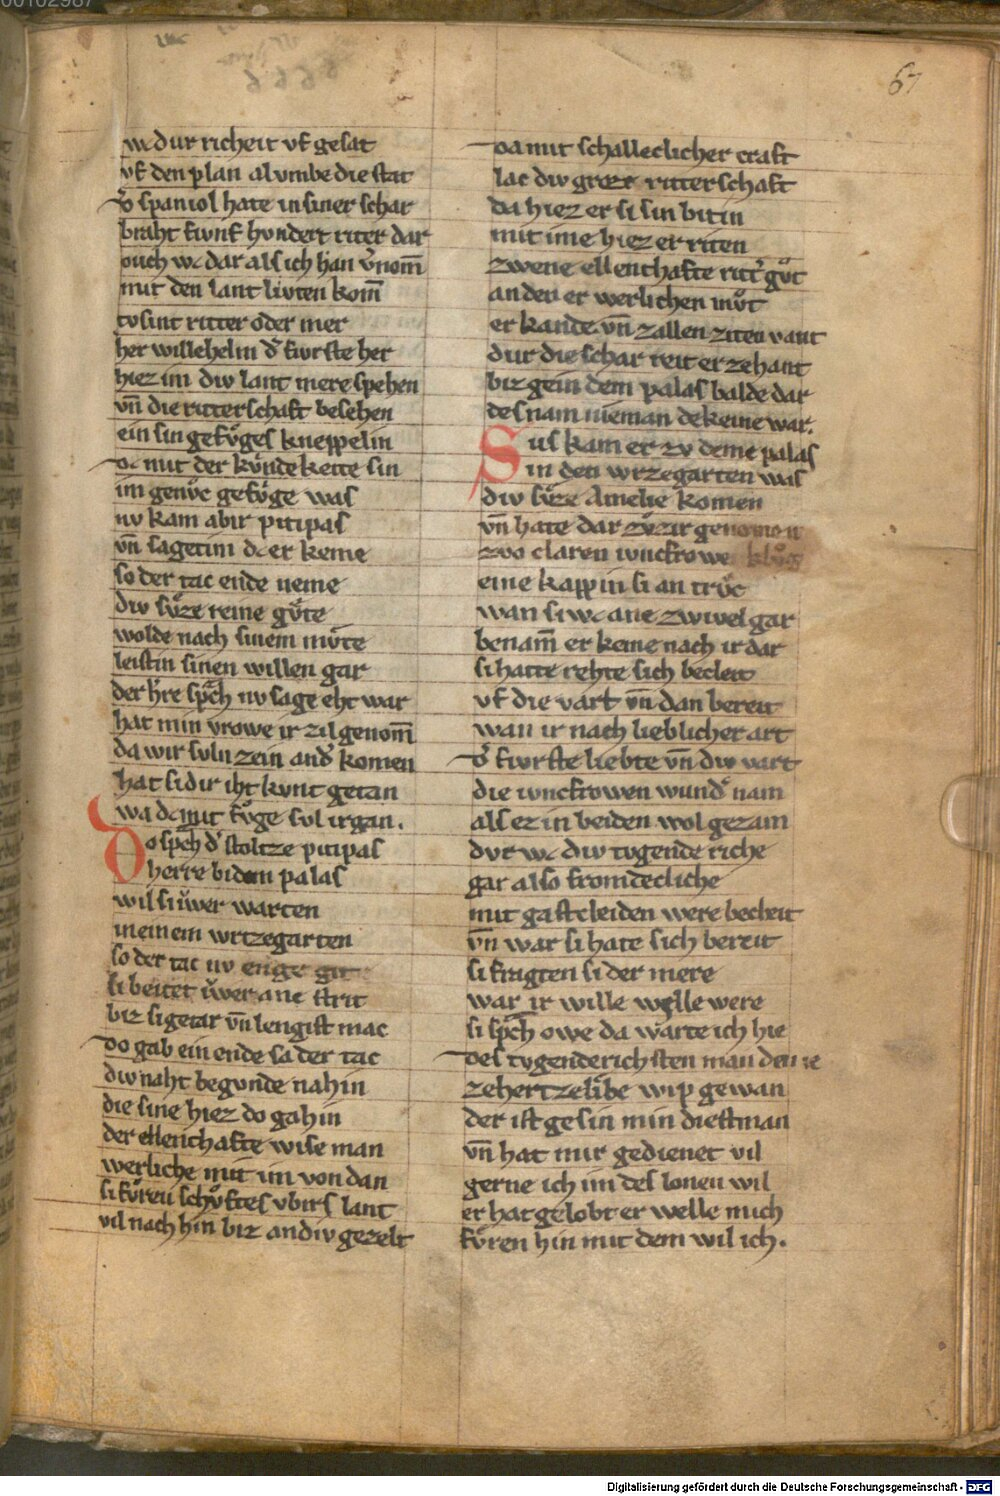 67
wc dur richeit vf gesat
vf den plan al vmbe die stat
Do spaniol hate in siner schar
braht fivnf hvndert riter dar
ouch wc dar als ich han v̾nom̄
mit den lant livten kom̄
tvsint ritter oder mer
her willehelm d̾ fivrste her
hiez im div lant mere spehen
vn̄ die ritterschaft besehen
ein sin gefvͦges knappelin
Dc mit der kvͤndekeite sin
im genvͦc gefvͤge was
nv kam abir pitipas
vn̄ sagetim dc er keme
so der tac ende neme
div svͤze reine gvͦte
wolde nach sinem mvͦte
leistin sinen willen gar
der h̾re sp̾ch nv sage eht war
hat min vrowe ir zil genom̄
da wir svln zein and̾ komen
hat si dir iht kvnt getan
wa dc mit fvͦge svl irgan.
Do sp̾ch d̾ stoltze pitipas
herre bi dem palas
wil si iv̾wer warten
in einem wrtzegarten
so der tac nv enge git
si beitet iv̾wer ane strit
biz si getar vn̄ lengist mac
Do gab ein ende sa der tac
div naht begvnde nahin
die sine hiez do gahin
der ellenthafte wise man
werliche mit im von dan
si fvͦren schvͦftes vbirs lant
vil nach hin biz an div gezelt
Da mit schalleclicher craft
lac div groze ritterschaft
da hiez er si sin bitin
mit ime hiez er riten
zwene ellenthafte ritt̾ gvͦt
an den er werlichen mvͦt
er kande vn̄ zallen ziten vant
dur die schar reit er zehant
biz gein dem palas balde dar
des nam nieman dekeine war.
Sus kam er zv deme palas
in den wrzegarten was
div svͤze Amelie komen
vn̄ hate dar zvͦ zir genomen
zvo claren ivncfrowen klvͦg
eine kappin si an trvͦc
wan si wc ane zwivel gar
benam̄ er keme nach ir dar
si hatte rehte sich becleit
vf die vart vn̄ dan bereit
wan ir nach lieblicher art
D̾ fivrste liebte vn̄ div vart
die ivncfrowen wund̾ nam
als ez in beiden wol gezam
dvr wc div tvgende riche
gar also fromdecliche
mit gastcleiden were becleit
vn̄ war si hate sich bereit
si fragten si der mere
war ir wille welle were
si sp̾ch owe da warte ich hie
Des tvgenderichsten man den ie
ze hertzelibe wip gewan
der ist gesin min dienstman
vn̄ hat mir gedienet vil
gerne ich im des lonen wil
er hat gelobt er welle mich
fvͤren hin mit dem wil ich.
Digitalisierung gefördert durch die Deutsche Forschungsgemeinschaft - DFG